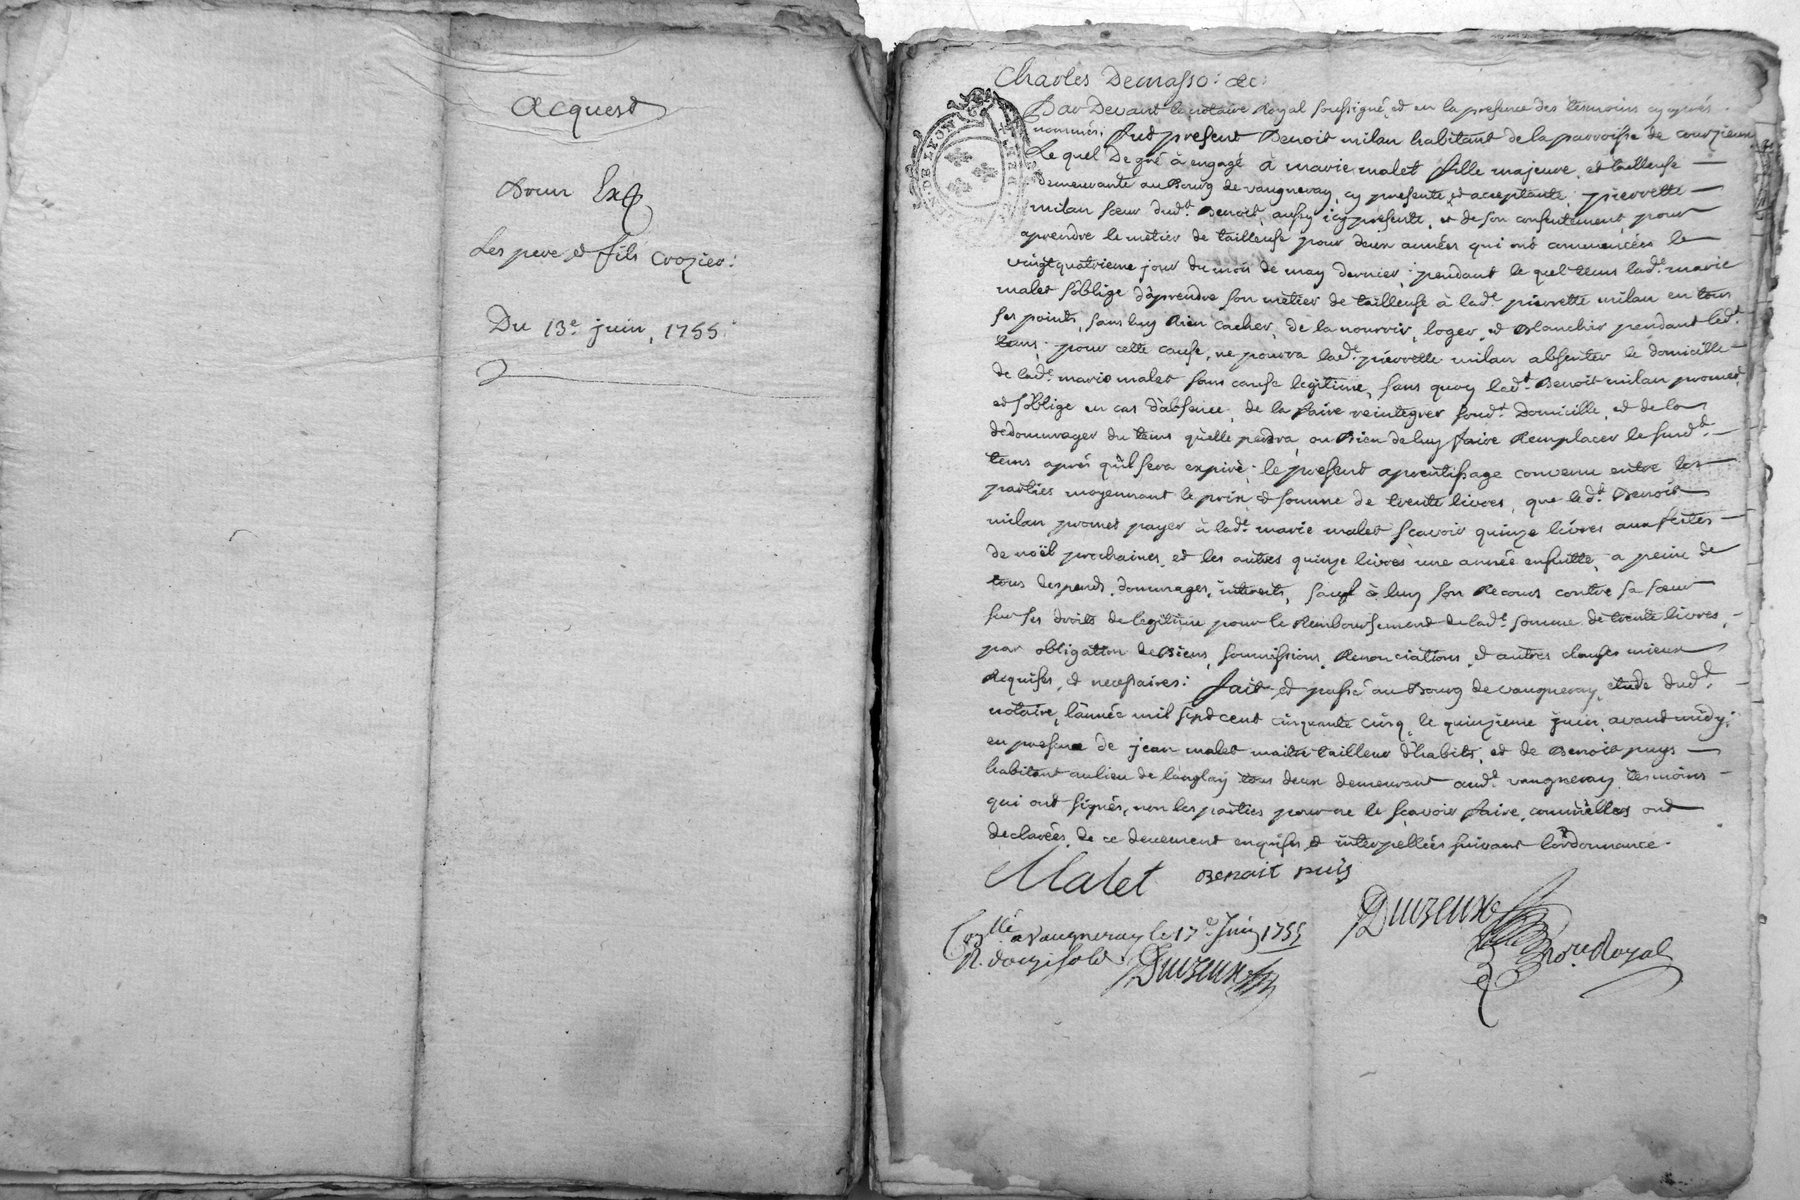 Acquest
Pour Exp.
Les pere & fils Crozier:
Du 13e. juin, 1755.
Charles Demasso: &c:
GEN. DE LYON
Par Devant le notaire Royal soussigné, et en la presence des temoins cy aprés
nommés; fut present Benoit milan habitant de la parroisse de courzieu
Le quel De gré à engagé à marie malet fille majeure, et tailleuse —
demeurante au Bourg de vaugneray, cy presente et acceptante, pierrette —
milan sœur dudt. Benoit, aussy icy presente, et de son consentement, pour
aprendre le metier de tailleuse pour deux années qui ont commencées le
vingtquatrieme jour du mois de may dernier; pendant le quel tems lade. marie
malet s'oblige d'aprendre son metier de tailleuse à lade. pierrette milan en tous
ses points, sans luy Rien cacher, de la nourrir, loger, et Blanchir pendant ledt.
tems; pour cette cause, ne pourra lade. pierrette milan absenter le domicille —
de lade. marie malet sans cause legitime, sans quoy ledt. Benoit milan promet,
et s'oblige en cas d'absence, de la faire reintegrer sondt. Domicille, et de la
dedommager du tems qu'elle perdra, ou Bien de luy faire Remplacer le susdt. —
tems aprés qu'il sera expiré; le present aprentissage convenu entre les
parties moyennant le prix et somme de trente livres, que ledt. Benoit
milan promet payer à lade. marie malet sçavoir quinze livres aux festes —
de noël prochaines, et les autres quinze livres une année ensuitte, a peine de
tous despends, dommages, interests, sauf à luy son Recours contre sa sœur
sur ses droits de legitime pour le Remboursement de lade. somme de trente livres, —
par obligation de Biens, soumissions, Renonciations, et autres clauses mieux
Requises, et necessaires; fait et passé au Bourg de vaugneray, etude dudt. —
notaire, l'année mil sept cent cinquante cinq, le quinzieme juin, avant midy;
en presence de jean malet maitre tailleur d'habits, et de Benoit puys —
habitant au lieu de tous deux demeurant audt. vaugneray, temoins —
qui ont signés, non les parties pour ne le sçavoir faire, comm'elles ont
declarées, de ce deuement enquises, et interpellées suivant l'ordonnance.
Malet Benoit puis
Duizeux
nore. Royal
Conllé. a Vaugneray le 17e. Juin 1755
R. douze sols Duizeux